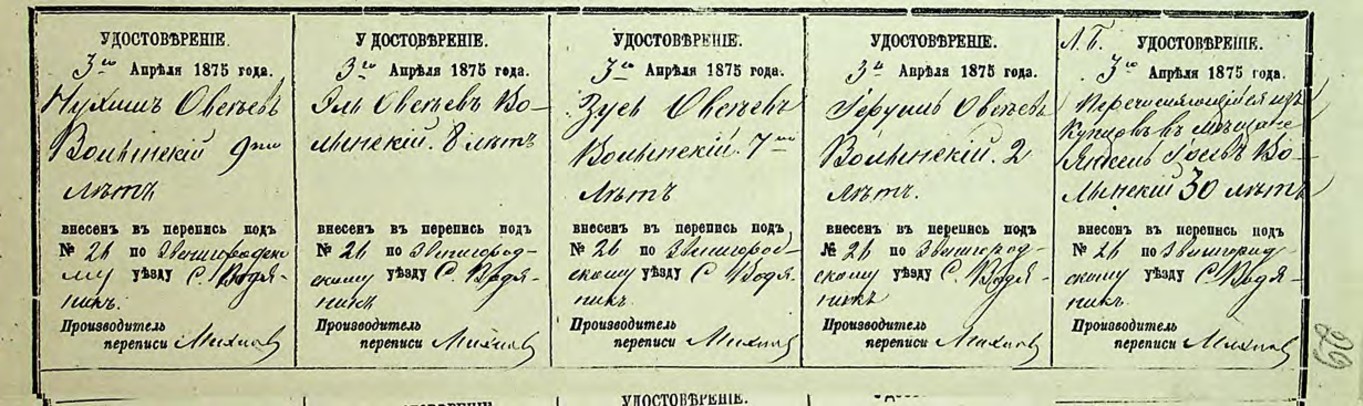 УДОСТОВѢРЕНІЕ.
3го Апрѣля 1875 года.
Нухимъ Овсѣевъ
Волынскій 9ти
лѣтъ
внесенъ въ перепись подъ
№ 26 по Звенигородско
му уѣзду С. Водя-
никъ.
Производитель
переписи
У ДОСТОВѢРЕНІЕ.
3го Апрѣля 1875 года.
Эль Овсѣевъ Во-
лынскій. 8 лѣтъ
внесенъ въ перепись подъ
№ 26 по Звенигород-
скому уѣзду С. Водя-
никъ
Производитель
переписи
УДОСТОВѢРЕНІЕ.
3го Апрѣля 1875 года.
Зусь Овсѣевъ
Волынскій. 7ми
лѣтъ
внесенъ въ перепись подъ
№ 26 по Звенигород-
скому уѣзду С Водя-
никъ.
Производитель
переписи
УДОСТОВѢРЕНІЕ.
3го Апрѣля 1875 года.
Овсѣевъ
Волынскій. 2
лѣтъ.
внесенъ въ перепись подъ
№ 26 по Звенигород-
скому уѣзду С. Водя-
никъ
Производитель
переписи
Л. Б. УДОСТОВѢРЕНІЕ.
3го Апрѣля 1875 года.
Перечисляющійся изъ
Купцовъ въ мѣщане
Янкель Во-
лынскій 30 лѣтъ
внесенъ въ перепись подъ
№ 26 по Звенигород-
скому уѣзду С Водя-
никъ.
Производитель
переписи
УДОСТОВѢРЕНІЕ.